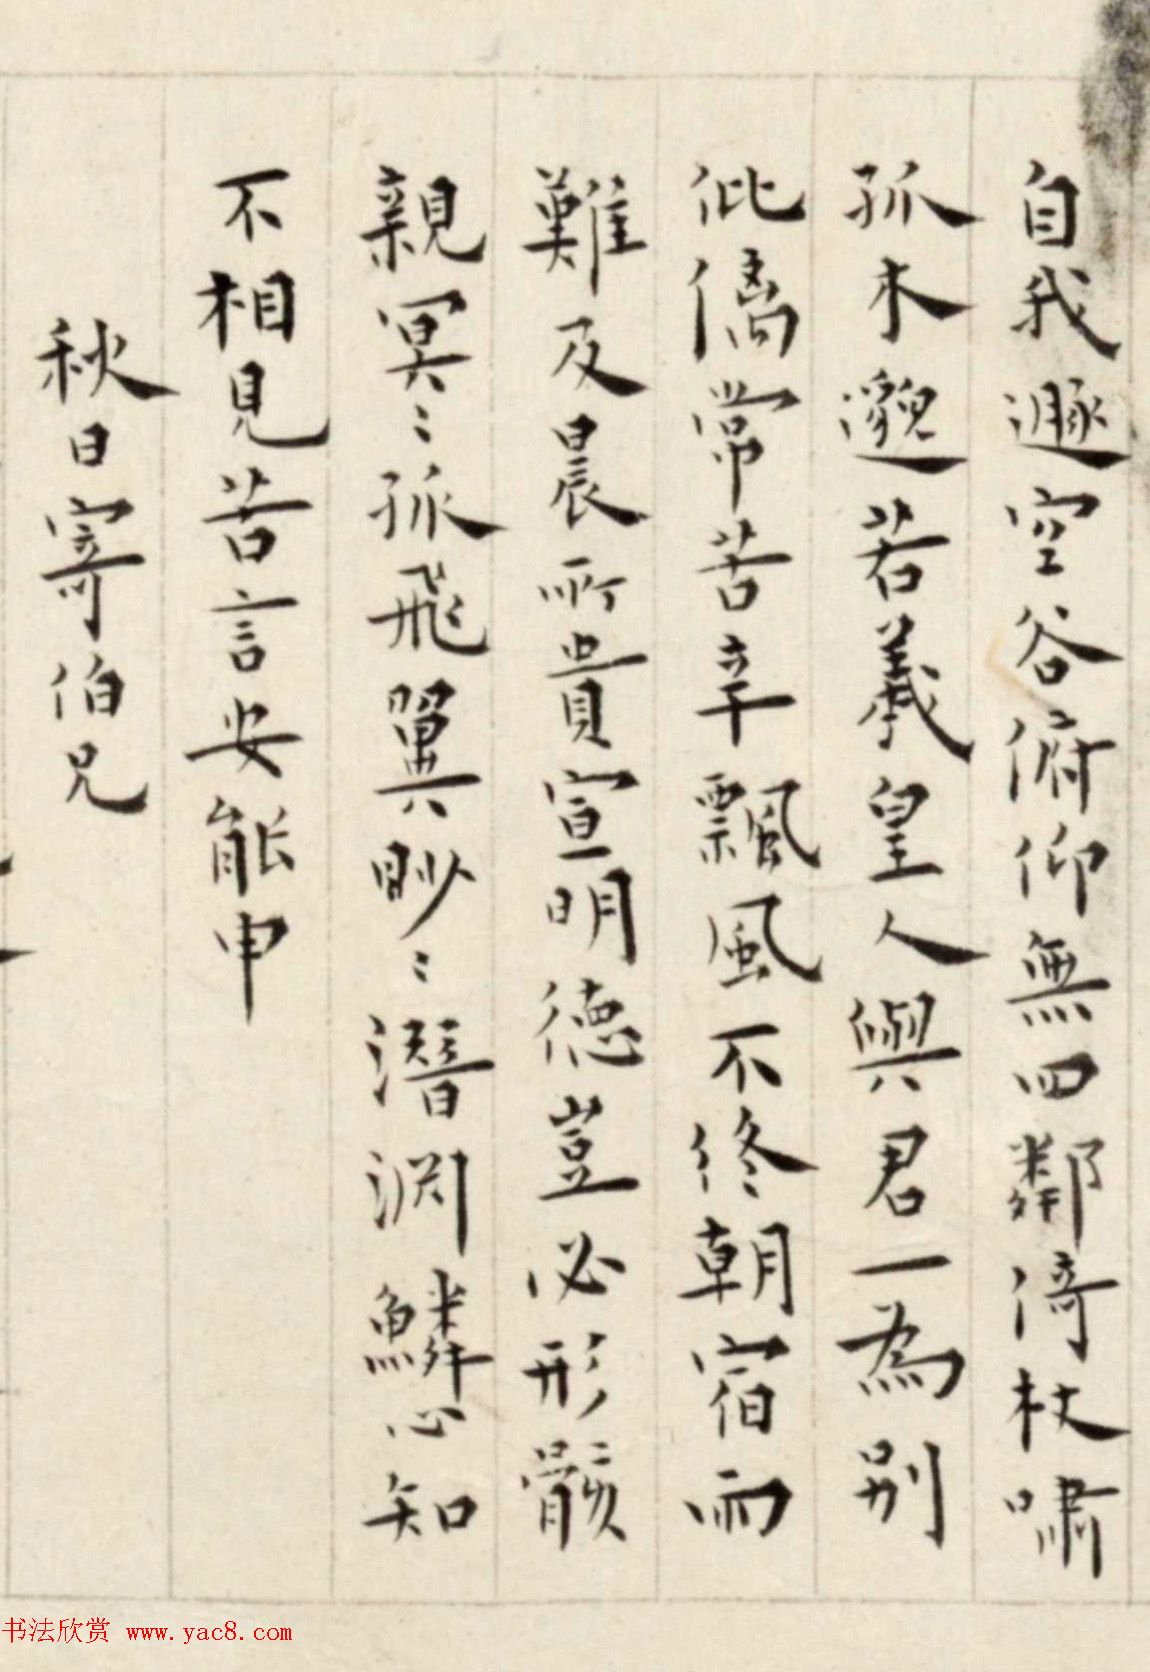 自我遯空谷俯仰無四鄰倚杖嘯
孤木邈若羲皇人與君一為別
仳僪常苦辛飄風不終朝宿雨
難及晨所貴宣明德豈必形骸
親冥〻孤飛翼眇〻潛淵鱗心知
不相見苦言安能申
秋日寄伯兄
书法欣赏 www.yac8.com